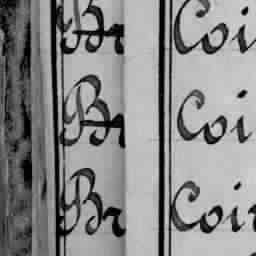 Br Coi
Br Coi
Br Coir